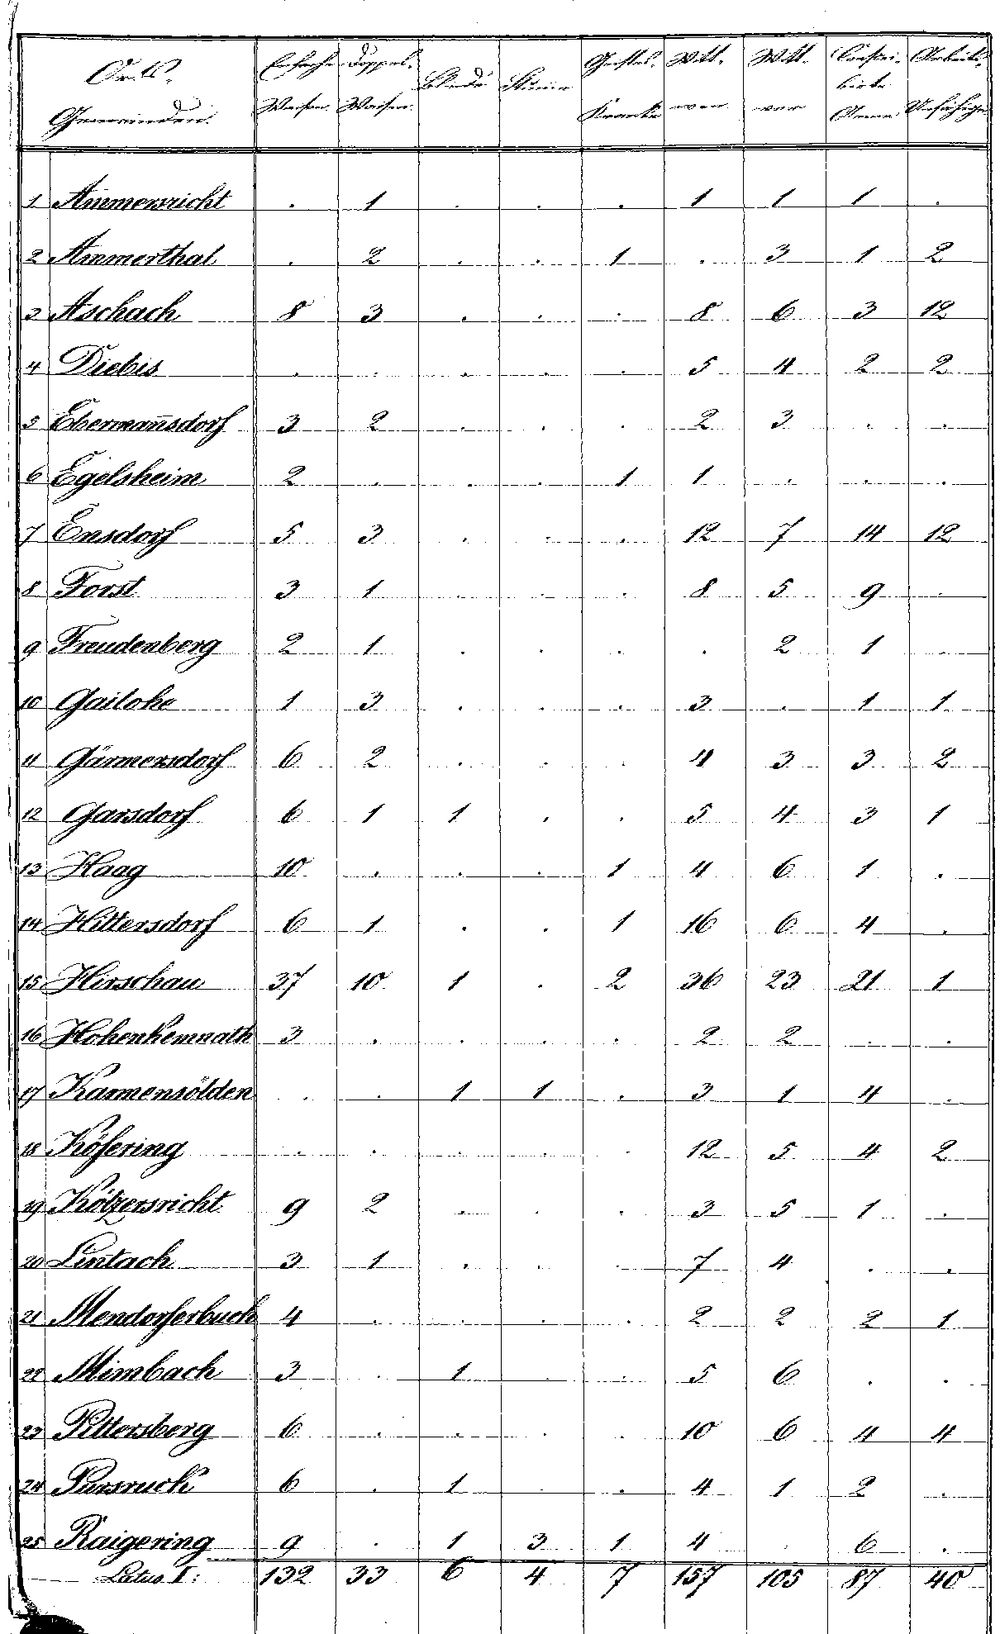 Orts- Einfache Doppel- Blinde Stumme Geistes- Witt- Witt- Conscri- Arbeits-
Gemeinden. Waisen. Waisen. Kranke wen wer birte Unfähige
Arme
1 Ammersricht . 1 . . . 1 1 1 .
2 Ammerthal . 2 . . 1 . 3 1 2
3 Aschach 8 3 . . . 8 6 3 12
4 Diebis . . . . . 5 4 2 2
5 Ebermañsdorf 3 2 . . . 2 3 . .
6 Egelsheim 2 . . . 1 1 . . .
7 Ensdorf 5 3 . . . 12 7 14 12
8 Forst 3 1 . . . 8 5 9 .
9 Freudenberg 2 1 . . . . 2 1 .
10 Gailohe 1 3 . . . 3 . 1 1
11 Gärmersdorf 6 2 . . . 4 3 3 2
12 Garsdorf 6 1 1 . . 5 4 3 1
13 Haag 10 . . . 1 4 6 1 .
14 Hiltersdorf 6 1 . . 1 16 6 4 .
15 Hirschau 37 10 1 . 2 36 23 21 1
16 Hohenkemnath 3 . . . . 2 2 . .
17 Karmensölden . . 1 1 . 3 1 4 .
18 Köfering . . . . . 12 5 4 2
19 Kötzersricht 9 2 . . . 3 5 1 .
20 Lintach 3 1 . . . 7 4 . .
21 Mendorferbuch 4 . . . . 2 2 2 1
22 Mimbach 3 . 1 . . 5 6 . .
23 Pittersberg 6 . . . . 10 6 4 4
24 Pursruck 6 . 1 . . 4 1 2 .
25 Raigering 9 . 1 3 1 4 . 6 .
Latus I: 132 33 6 4 7 157 105 87 40